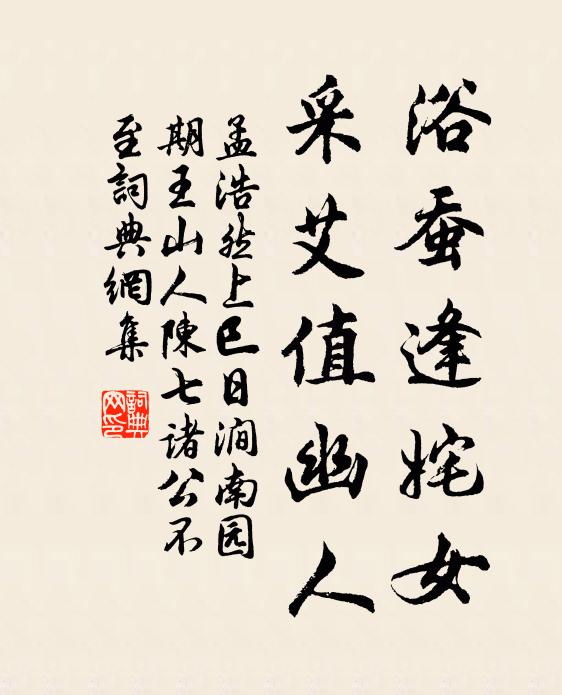 浴蚕逢姹女
采艾值幽人
孟浩然上巳日涧南园
期王山人陳七诸公不
至詞典網集
詞典
网印